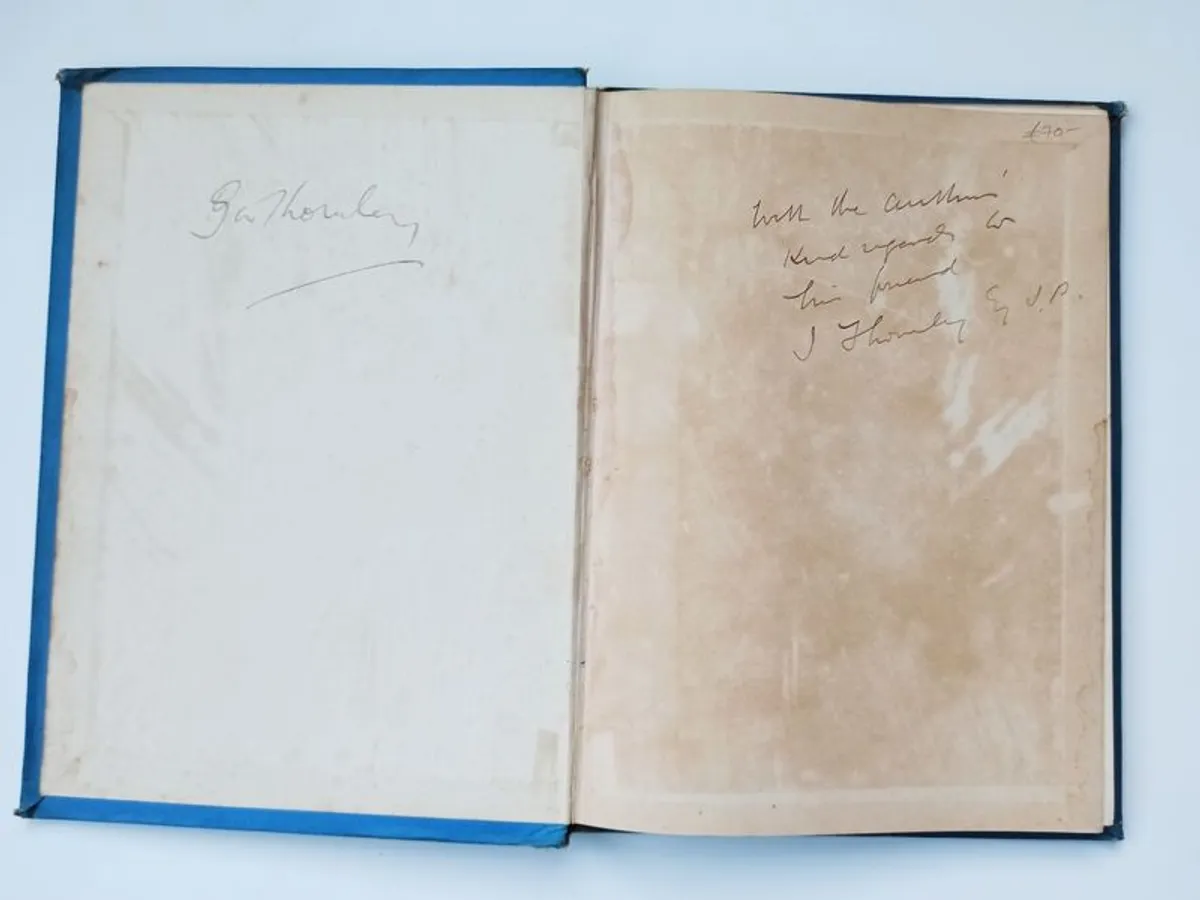 Thornley
£70-
With the author's
Kind regards to
his friend
J Thornley Esq J.P.